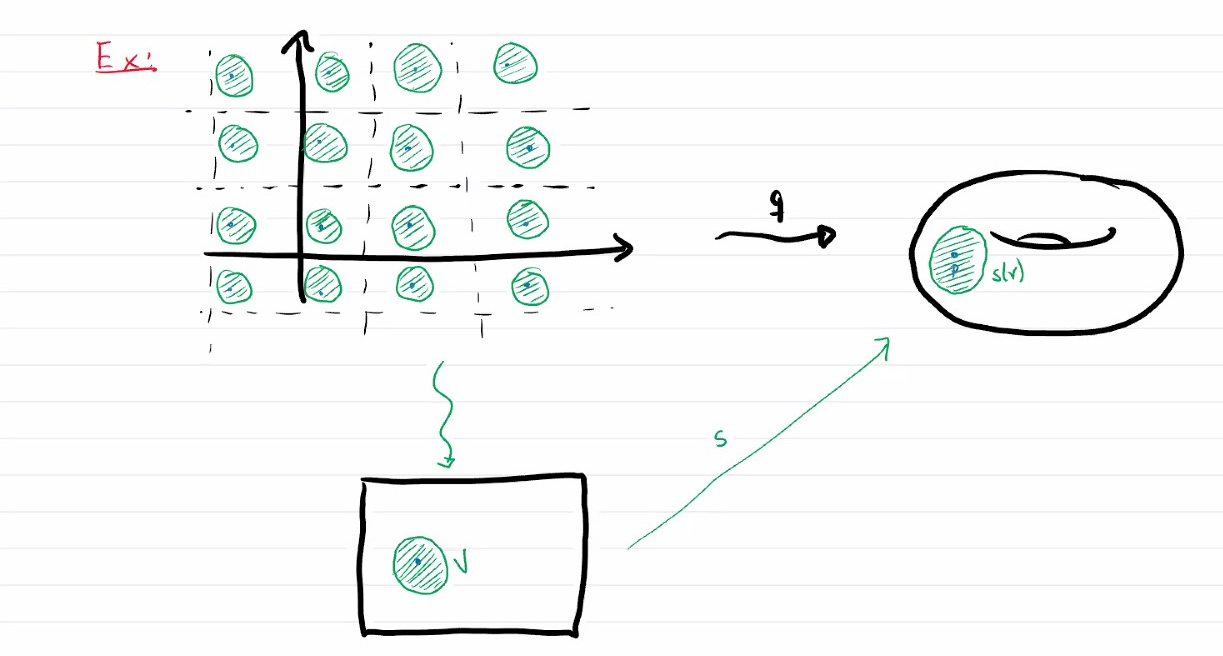 Ex:
q
p
s(v)
s
V